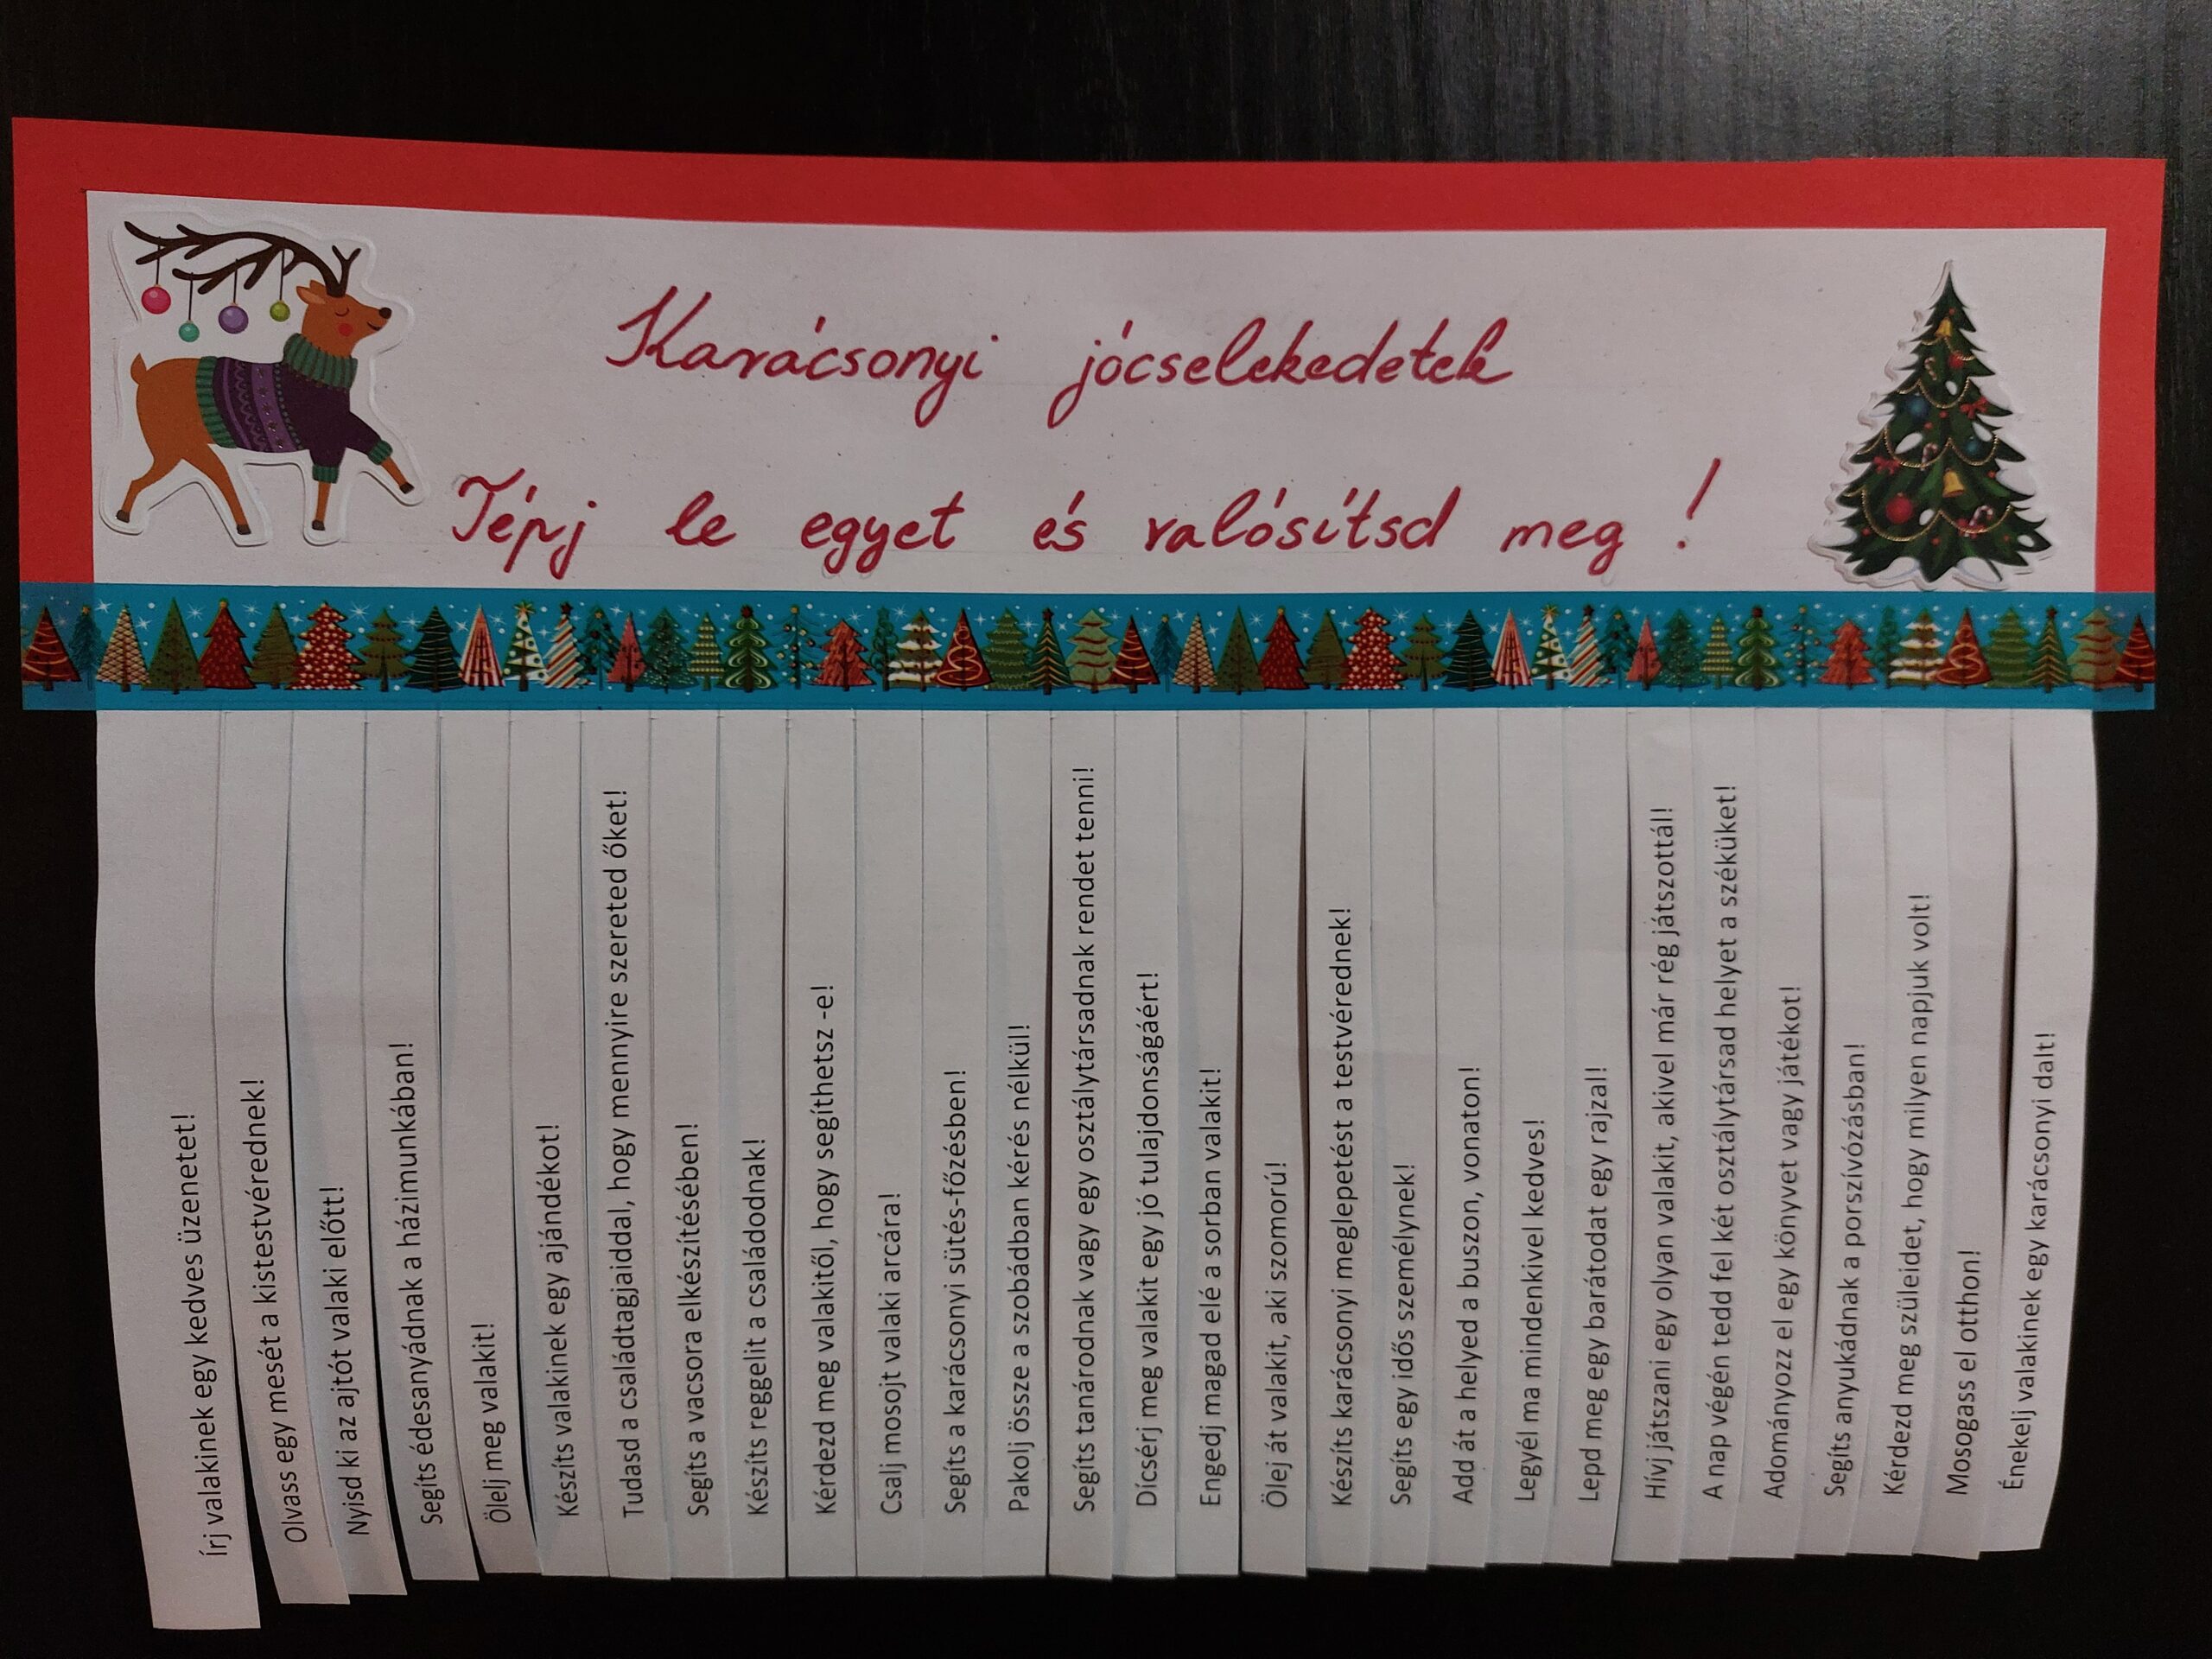 Karácsonyi jócselekedetek
Tépj le egyet és valósítsd meg!
Írj valakinek egy kedves üzenetet!
Olvass egy mesét a kistestvérednek!
Nyisd ki az ajtót valaki előtt!
Segíts édesanyádnak a házimunkában!
Ölelj meg valakit!
Készíts valakinek egy ajándékot!
Tudasd a családtagjaiddal, hogy mennyire szereted őket!
Segíts a vacsora elkészítésében!
Készíts reggelit a családodnak!
Kérdezd meg valakitől, hogy segíthetsz -e!
Csalj mosojt valaki arcára!
Segíts a karácsonyi sütés-főzésben!
Pakolj össze a szobádban kérés nélkül!
Segíts tanárodnak vagy egy osztálytársadnak rendet tenni!
Dícsérj meg valakit egy jó tulajdonságáért!
Engedj magad elé a sorban valakit!
Ölej át valakit, aki szomorú!
Készíts karácsonyi meglepetést a testvérednek!
Segíts egy idős személynek!
Add át a helyed a buszon, vonaton!
Legyél ma mindenkivel kedves!
Lepd meg egy barátodat egy rajzal!
Hívj játszani egy olyan valakit, akivel már rég játszottál!
A nap végén tedd fel két osztálytársad helyet a széküket!
Adományozz el egy könyvet vagy játékot!
Segíts anyukádnak a porszívózásban!
Kérdezd meg szüleidet, hogy milyen napjuk volt!
Mosogass el otthon!
Énekelj valakinek egy karácsonyi dalt!